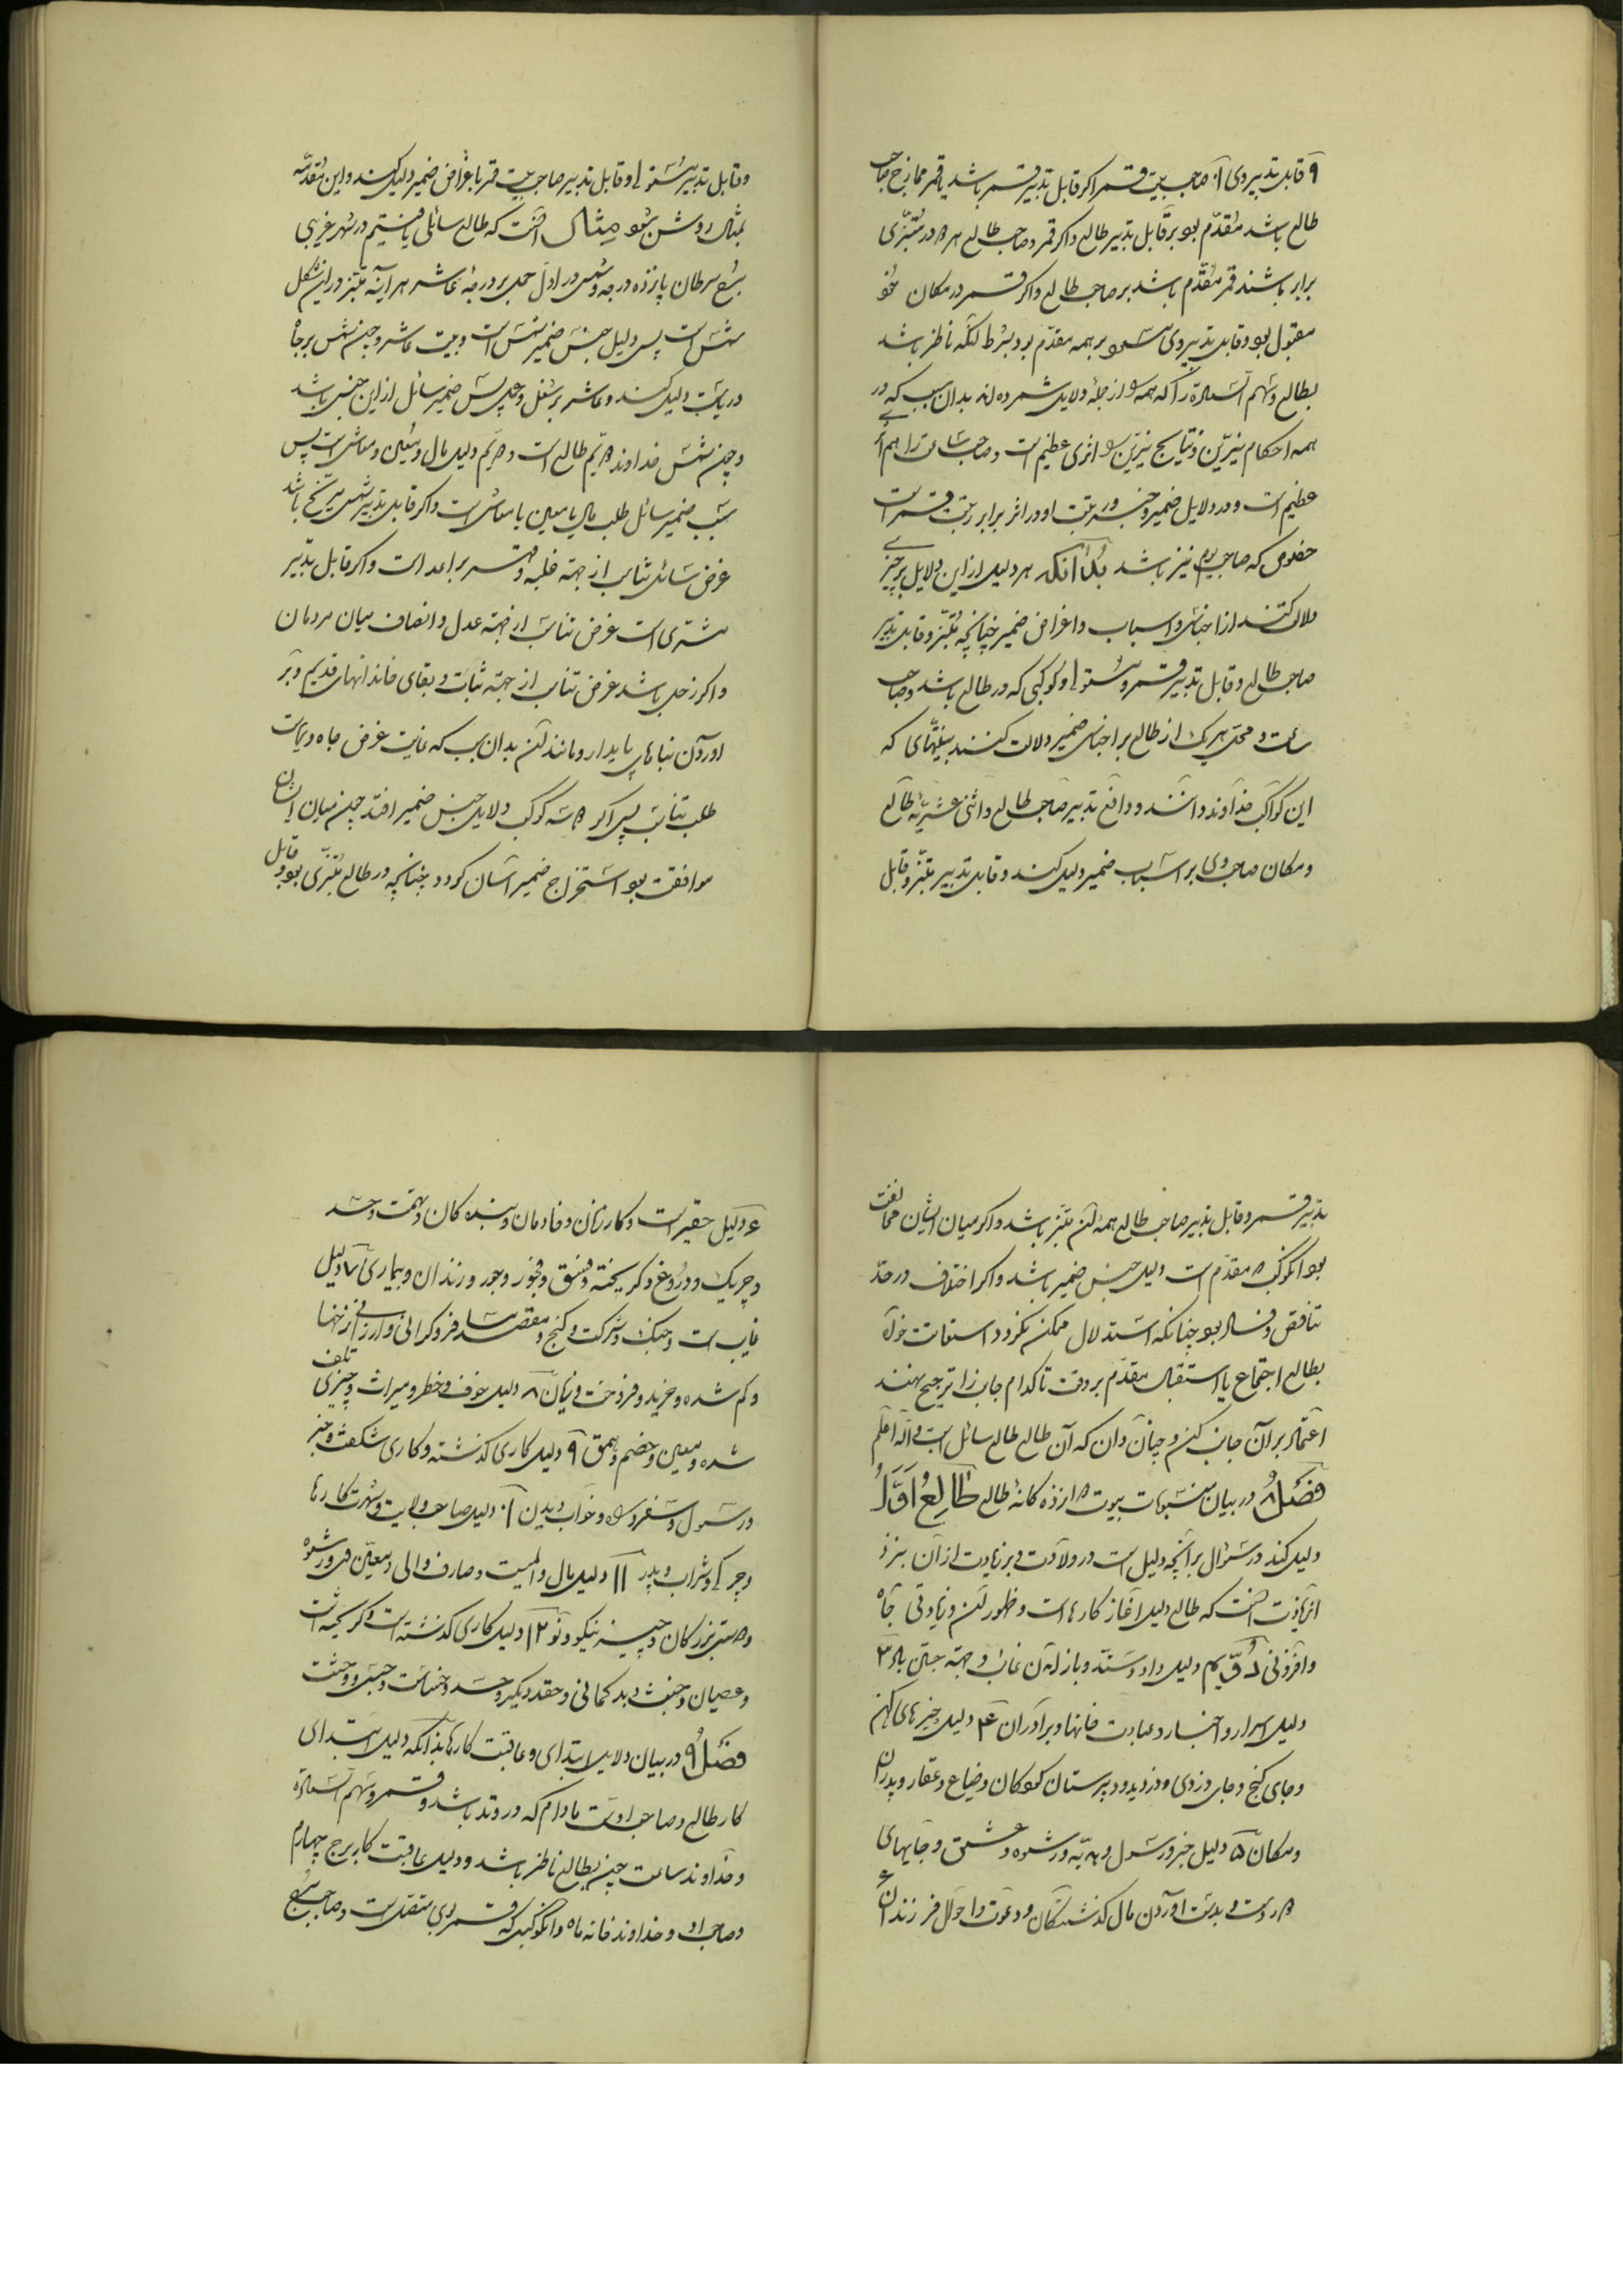 ۹ قابل تدبیر وی ۱۰ صاحب بیت قمر اگر قابل تدبیر قمر باشد یا قمر ممازج صاحب
طالع باشد مقدّم بود بر قابل تدبیر طالع و اگر قمر و صاحب طالع هر در مبتزّی
برابر باشند قمر مقدّم باشد بر صاحب طالع و اگر قمر در مکان خود
مقبول بود و قابل تدبیر وی بر همه مقدّم بود بشرط آنکه ناظر باشد
بطالع و سهم السّعادة را که همه از جمله دلایل شمرده‌اند بدان سبب که در
همه احکام نیّرین و نتایج نیّرین اثری عظیم است و صاحب ساعت را هم اثر
عظیم است و در دلایل ضمیر و خبر و رتبت او در اثر برابر رتبت قمر است
خصوص که صاحب یوم نیز باشد بدانکه هر دلیل از این دلایل بر چیزی
دلالت کنند از اجناس و اسباب و اغراض ضمیر چنانچه مبتز و قابل تدبیر
صاحب طالع و قابل تدبیر قمر و مستولی و کوکبی که در طالع باشد و صاحب
ساعت و محل هر یک از طالع بر اجناس ضمیر دلالت کنند که
این کواکب خداوند و دافع تدبیر صاحب طالع و اثنی عشریّه طالع
و مکان صاحب وی بر اسباب ضمیر دلیل کند و قابل تدبیر مبتز و قابل
و قابل تدبیر مستولی و قابل تدبیر صاحب بیت قمر با غراض ضمیر دلیل کند و این مقدّمه
بمثال روشن شود مثال آنست که طالع سائلی یافتیم در شهر غزنین
برج سرطان پانزده درجه و شمس در اول حمل بر درجه عاشر هر آینه مبتز در این شکل
شمس است پس دلیل جنس ضمیر شمس است و بیت عاشر و چون شمس بر جاه
و ریاست دلیل کند و عاشر بر شغل و عمل پس ضمیر سائل از این جنس باشد
و چون شمس خداوند دوم طالع است و دوم دلیل مال و معین و معاش است پس
سبب ضمیر سائل طلب مال یا معین یا معاش است و اگر قابل تدبیر شمس مریخ باشد
غرض سائل از جهة غلبه و قهر بر اعدا است و اگر قابل تدبیر
مشتری است غرض از جهة عدل و انصاف میان مردمان
و اگر زحل باشد غرض از جهة ثبات و بقای خاندانهای قدیم و بر
آوردن بناهای پایدار و مانند آن بدان سبب که غایت غرض جاه و ریاست
پس اگر کوکب دلایل جنس ضمیر افتد چون میان ایشان
موافقت بود استخراج ضمیر آسان گردد چنانچه در طالع مبتزی بود و قابل
تدبیر قمر و قابل تدبیر صاحب طالع همه آن مبتز باشد و اگر میان ایشان مخالفت
بود آن کوکب که مقدّم است دلیل جنس ضمیر باشد و اگر اختلاف در حدّ
تناقض و فساد بود چنانکه استدلال ممکن نگردد استعانت خواه
بطالع اجتماع یا استقبال مقدّم بر وقت تا کدام جانب را ترجیح نهند
اعتماد بر آن جانب کن و چنان دان که آن طالع طالع سائل است والله اعلم
فصل ۸ در بیان منسوبات بیوت دوازده گانه طالع طالع اوّل
دلیل کند در سؤال بر آنچه دلیل است در ولادت و بر زیادت از آن نیز
از زیادت آنست که طالع دلیل آغاز کارهاست و ظهور آن و زیادتی جاه
و افزونی دوّیم دلیل داد و ستد و باز آمدن غائب و ۳
دلیل اسرار و اخبار و عبادت خانها و برادران ۴ دلیل چیزهای کهن
و جای گنج و جای دزدی و دزدیده و دبیرستان کودکان و ضیاع و عقار و پدران
و مکان ۵ دلیل خبر و رسول و هدیّه و رشوه و عشق و جایهای
و بدست آوردن مال گذشتگان و دعوت و احوال فرزندان
۶ دلیل حقیرات و کارزنان و خادمان و بنده کان و تهمت و حسد
و چریک و دروغ و گریخته و فسق و فجور و جور و زندان و بیماری ۷ دلیل
غایب است و جنگ و شرکت و گنج و مقصد مسافر و گرانی و ارزانی نرخها
و گم شده و خرید و فروخت و زنان ۸ دلیل خوف و خطر و میراث و چیزی تلف
شده و معین و خصم و حمق ۹ دلیل کاری گذشته و کاری شگفت و خبر
و رسول و سفر و راه و خواب دیدن ۱۰ دلیل صاحب ولایت و شهرت کارها
و شراب و پدر ۱۱ دلیل مال و صارف والی و معین وی و رشوه
و دوستی بزرگان و چیز نیکو و نو ۱۲ دلیل کاری گذشته است و گریخته است
و عصیان و خبث و بدگمانی و حقد و کبر و حسد و خیانت و حبس و وحشت
فصل ۹ در بیان دلایل ابتدای و عاقبت کارها بدانکه دلیل ابتدای
کار طالع و صاحب اوست مادام که در وتد باشد و قمر و سهم السّعادة
و خداوند ساعت چون بطالع ناظر باشد و دلیل عاقبت کار برج چهارم
و صاحب او و خداوند خانه ماه و آن کوکب که قمر بوی متصل است و صاحب